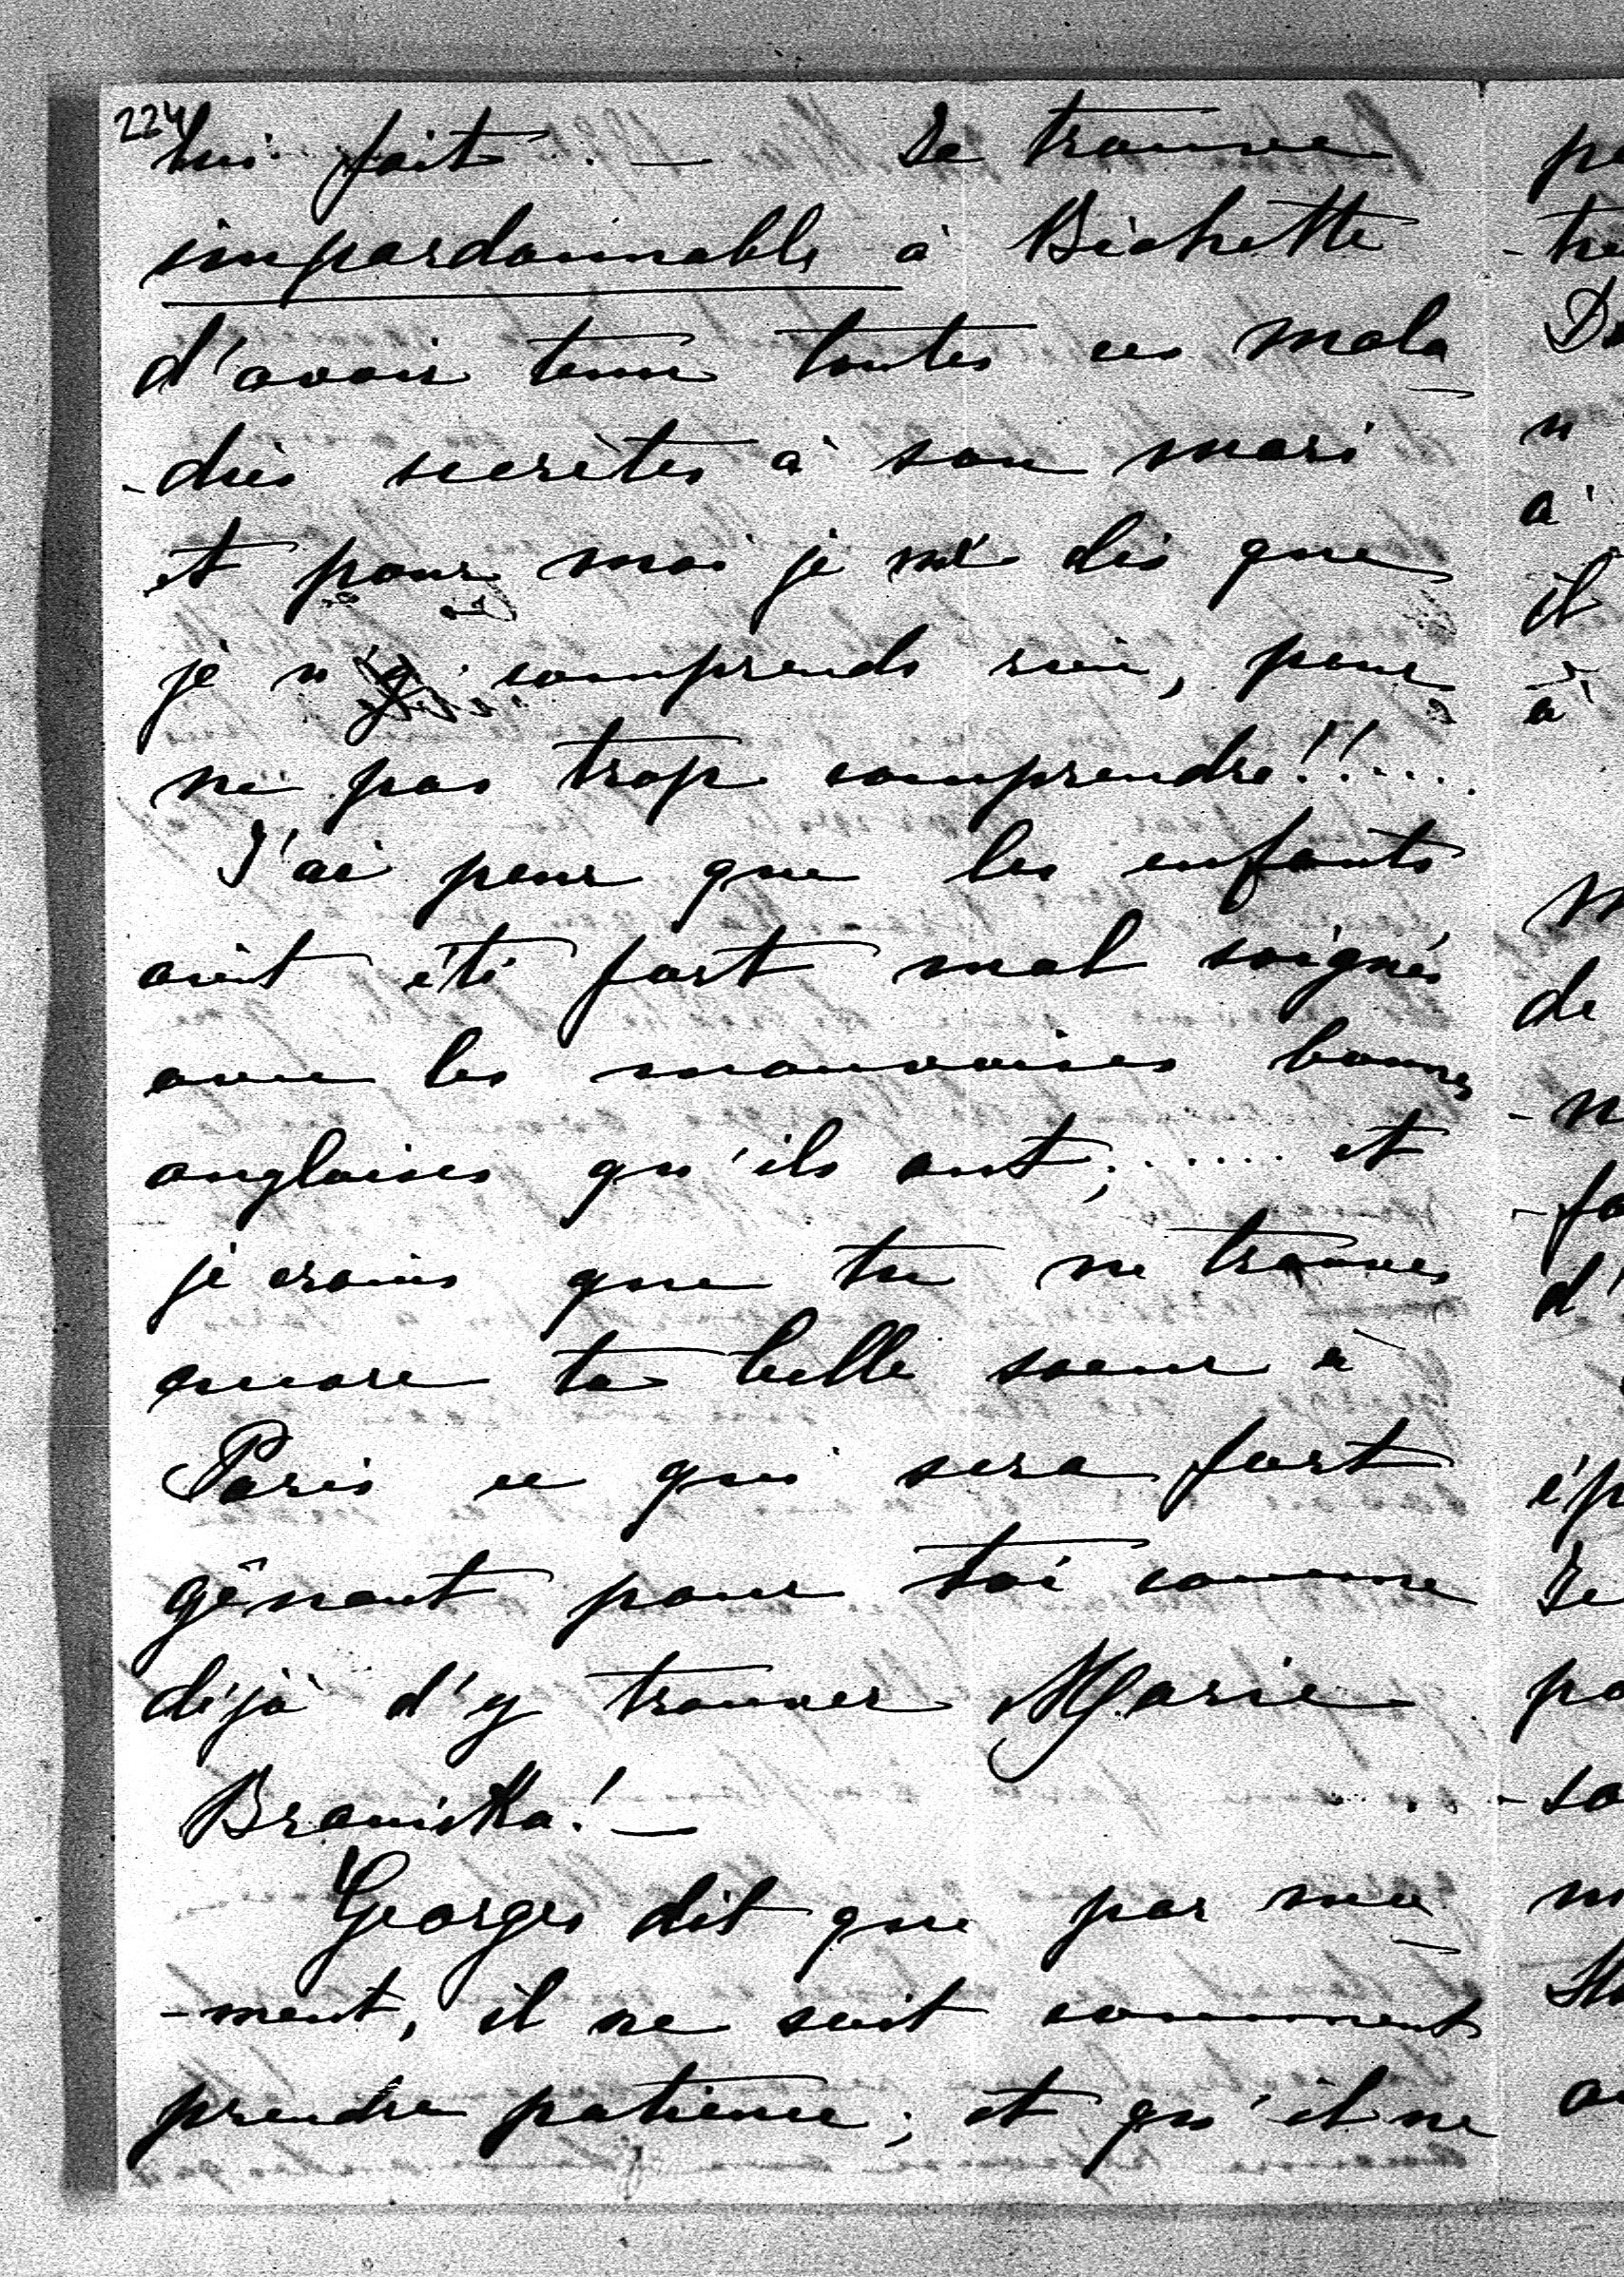 224
lui fait. — Je trouve
impardonnable à Bichette
d'avoir tenu toutes ces mala
-dies secrètes à son mari
et pour moi je me dis que
je n'y comprends rien, pour
ne pas trop comprendre!!....
J'ai peur que les enfants
aient été fort mal soignés
avec les mauvaises bonnes
anglaises qu'ils ont; ...... et
je crains que tu ne trouves
encore ta belle soeur à
Paris ce qui sera fort
gênant pour toi comme
déjà d'y trouver Marie
Branicka! —
Georges dit que par mo
-ment, il ne sait comment
prendre patience; et qu'il ne